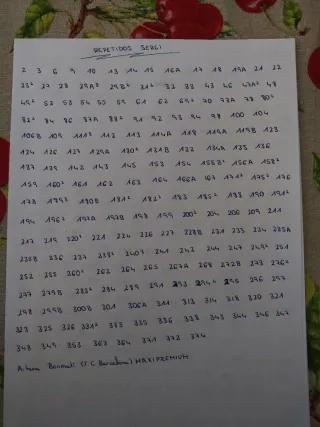 REPETIDOS SERGI
2 3 6 9 10 13 14 15 16A 17 18 19A 21 22
23² 27 28 29A² 29B² 31² 32 33 43 46 47A² 48
49² 52 53 54 55 59 61 62 69² 70 73A 78 80²
82² 84 86 87A 88² 91 92 93 94 98 100 104
106B 109 111² 112 113 114A 118 119A 119B 123
124 126 127 129A 130² 131B 132 134A 135 136
137 139 142 143 145 153 154 155B² 156A 158²
159 160² 161 162 163 164 166A 167 171² 175² 176
178 179² 180B 181² 182² 183 185² 188 190 191²
194 196² 197A 197B 198 199 200² 204 206 209 211
217 219 220² 221 224 226 227 228B 231 235 234 235A
235B 236 237 238² 240² 241 242 244 247 249² 251
252 255 260² 262 264 265 267A 268 272B 273 276²
277 279B 282² 284 289 291 293 294² 295 296 297
298 299B 300B 301 306A 311 313 314 318 320 321
323 325 326 331² 333 335 336 338 343 344 346 347
348 349 353 363 364 371 372 374
Aitana Bonmatí (F.C Barcelona) MAXI PREMIUM